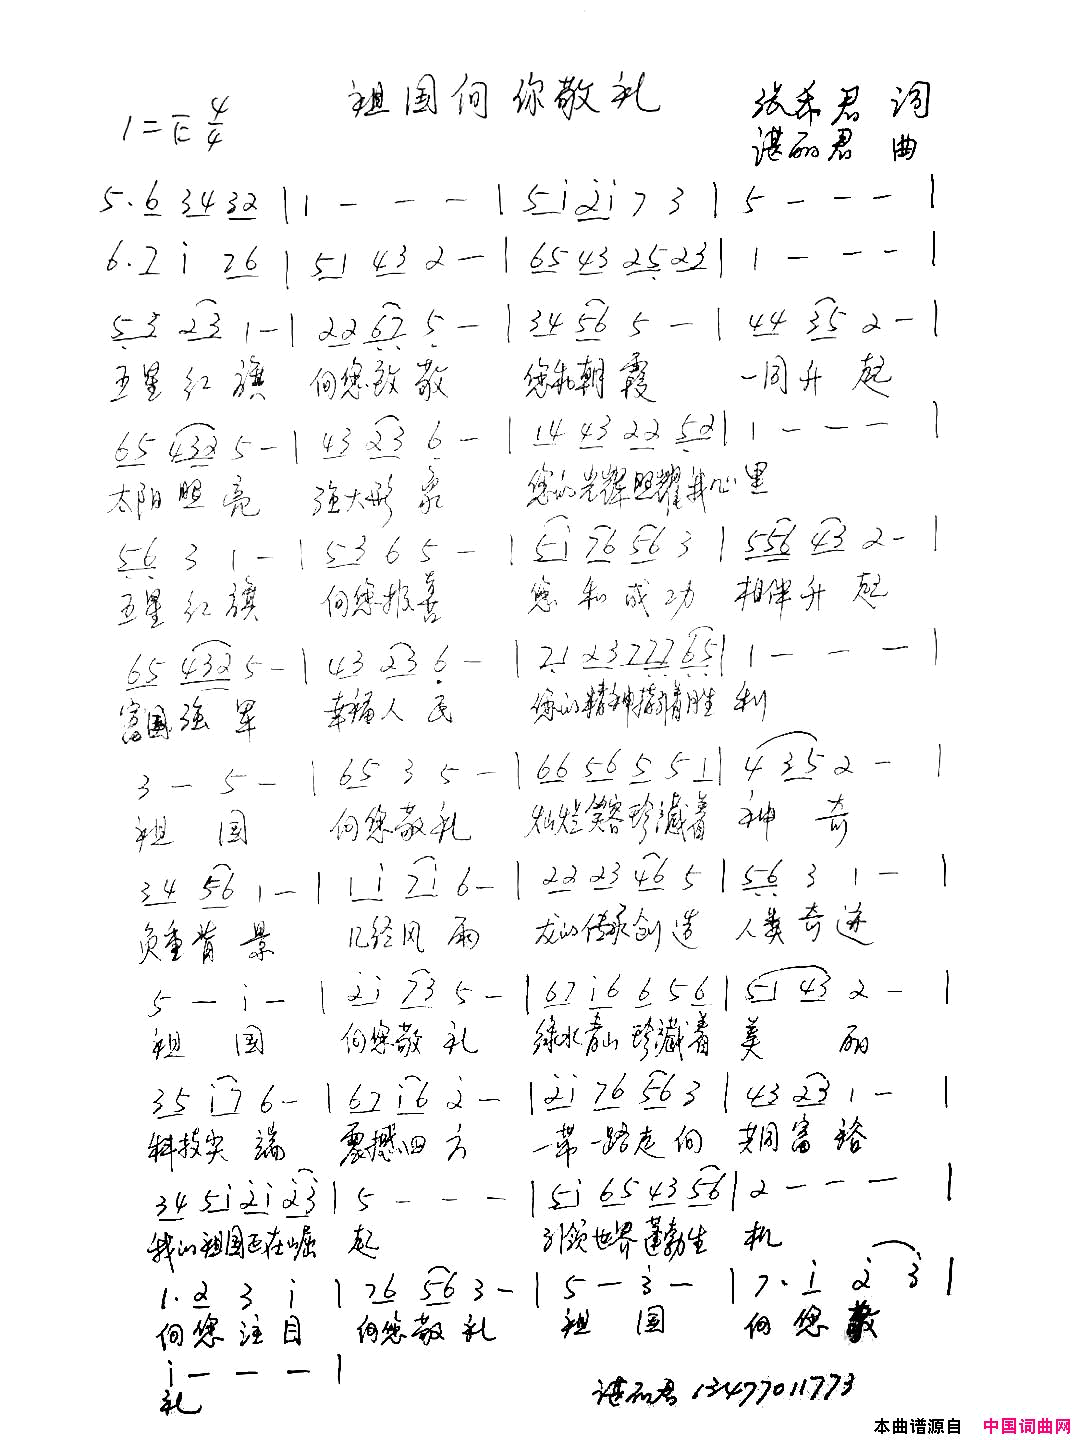 祖国向你敬礼
1=E 4/4
张希君 词
谌丽君 曲
5. 6 34 32 | 1 - - - | 5i 2i 7 3 | 5 - - - |
6. 7 i 76 | 51 43 2 - | 65 43 25 23 | 1 - - - |
53 23 1 - | 22 67 5 - | 34 56 5 - | 44 35 2 - |
五星红旗 向您致敬 您和朝霞 一同升起
65 432 5 - | 43 23 6 - | 14 43 22 52 | 1 - - - |
太阳照亮 强大形象 您的光辉照耀我心里
56 3 1 - | 53 6 5 - | 5i 76 56 3 | 556 43 2 - |
五星红旗 向您报喜 您和成功 相伴升起
65 432 5 - | 43 23 6 - | 21 23 777 65 | 1 - - - |
富国强军 幸福人民 你的精神指引着胜利
3 - 5 - | 65 3 5 - | 66 56 5 51 | 4 35 2 - |
祖国 向您敬礼 灿烂笑容珍藏着 神奇
34 56 1 - | 1i 7i 6 - | 22 23 46 5 | 56 3 1 - |
负重背景 几经风雨 龙的传承创造 人类奇迹
5 - i - | 2i 73 5 - | 67 i6 6 56 | 51 43 2 - |
祖国 向您敬礼 绿水青山珍藏着 美丽
35 i7 6 - | 67 i6 2 - | 2i 76 56 3 | 43 23 1 - |
科技尖端 震撼四方 一带一路走向 共同富裕
34 5i 2i 23 | 5 - - - | 5i 65 43 56 | 2 - - - |
我的祖国正在崛起 引领世界蓬勃生机
1. 2 3 i | 76 56 3 - | 5 - 3 - | 7. i 2 3 |
向您注目 向您敬礼 祖国 向您敬
i - - - |
礼
谌丽君 13477011773
本曲谱源自 中国词曲网